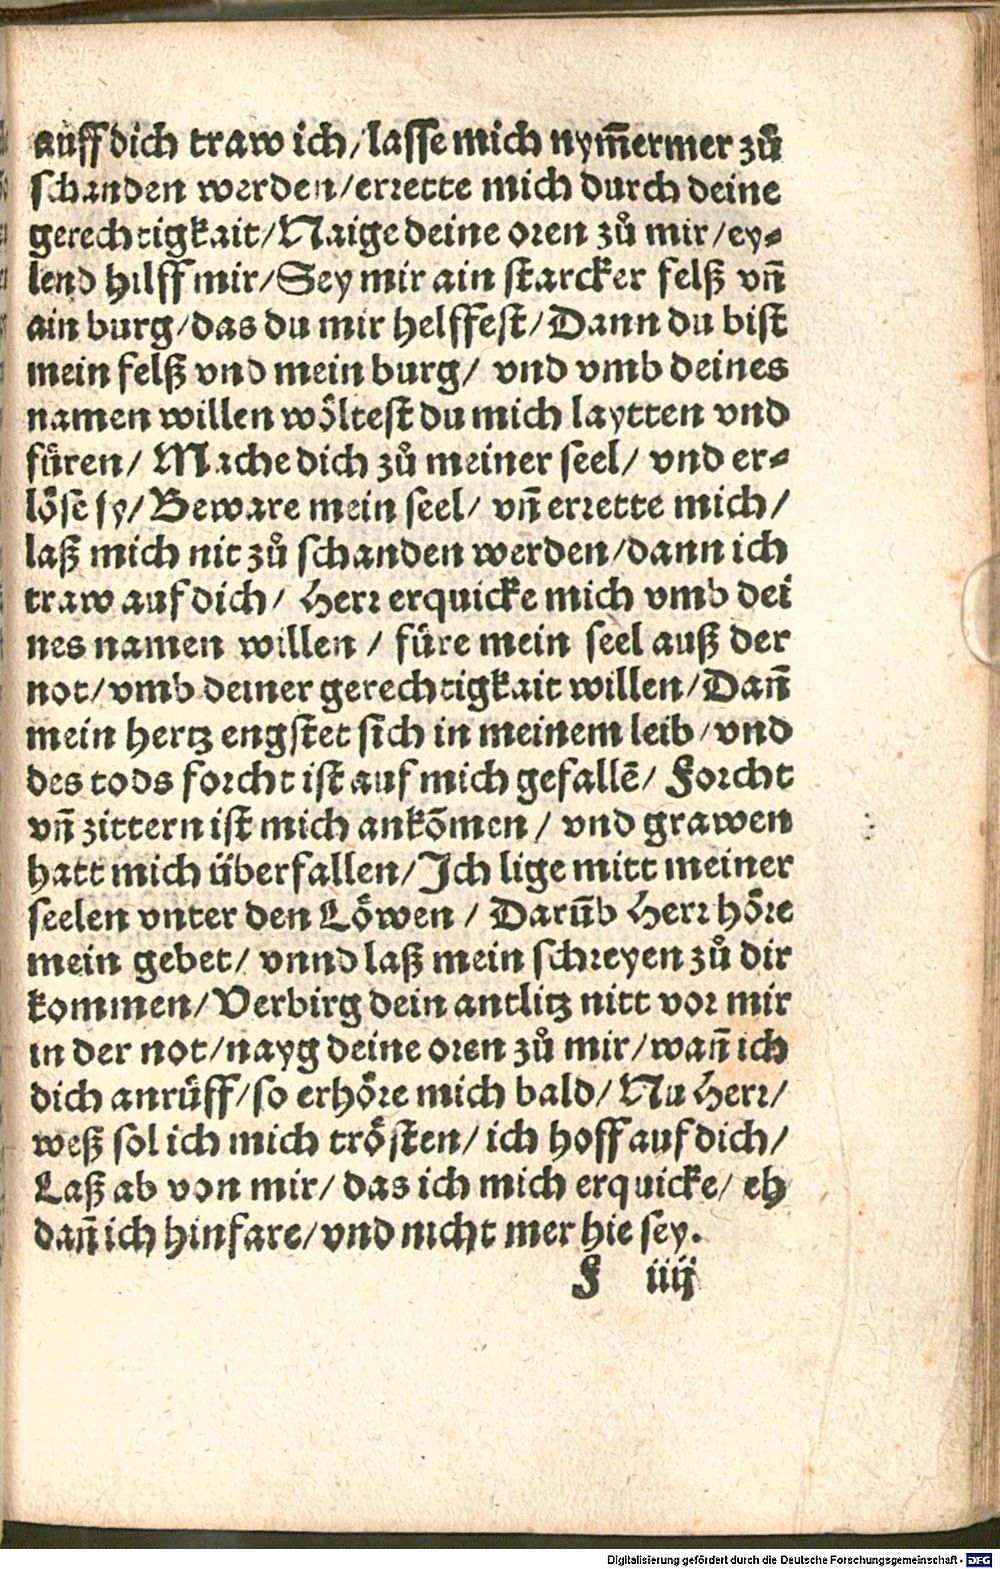 auff dich traw ich/lasse mich nym̃ermer zů
schanden werden/errette mich durch deine
gerechtigkait/Naige deine oren zů mir/ey-
lend hilff mir/Sey mir ain starcker felß vñ
ain burg/das du mir helffest/Dann du bist
mein felß vnd mein burg/ vnd vmb deines
namen willen wöltest du mich laytten vnd
füren/ Mache dich zů meiner seel/ vnd er-
löse sy/Beware mein seel/ vñ errette mich/
laß mich nit zů schanden werden/dann ich
traw auf dich/ Herr erquicke mich vmb dei
nes namen willen / füre mein seel auß der
not/vmb deiner gerechtigkait willen/Dañ
mein hertz engstet sich in meinem leib/vnd
des tods forcht ist auf mich gefallẽ/ Forcht
vñ zittern ist mich ankõmen / vnd grawen
hatt mich überfallen/Ich lige mitt meiner
seelen vnter den Löwen / Darũb Herr höre
mein gebet/ vnnd laß mein schreyen zů dir
kommen/Verbirg dein antlitz nitt vor mir
in der not/nayg deine oren zů mir/wañ ich
dich anrüff/so erhöre mich bald/Nu Herr/
weß sol ich mich trösten/ich hoff auf dich/
Laß ab von mir/das ich mich erquicke/eh
dañ ich hinfare/vnd nicht mer hie sey.
F iiij
Digitalisierung gefördert durch die Deutsche Forschungsgemeinschaft - DFG